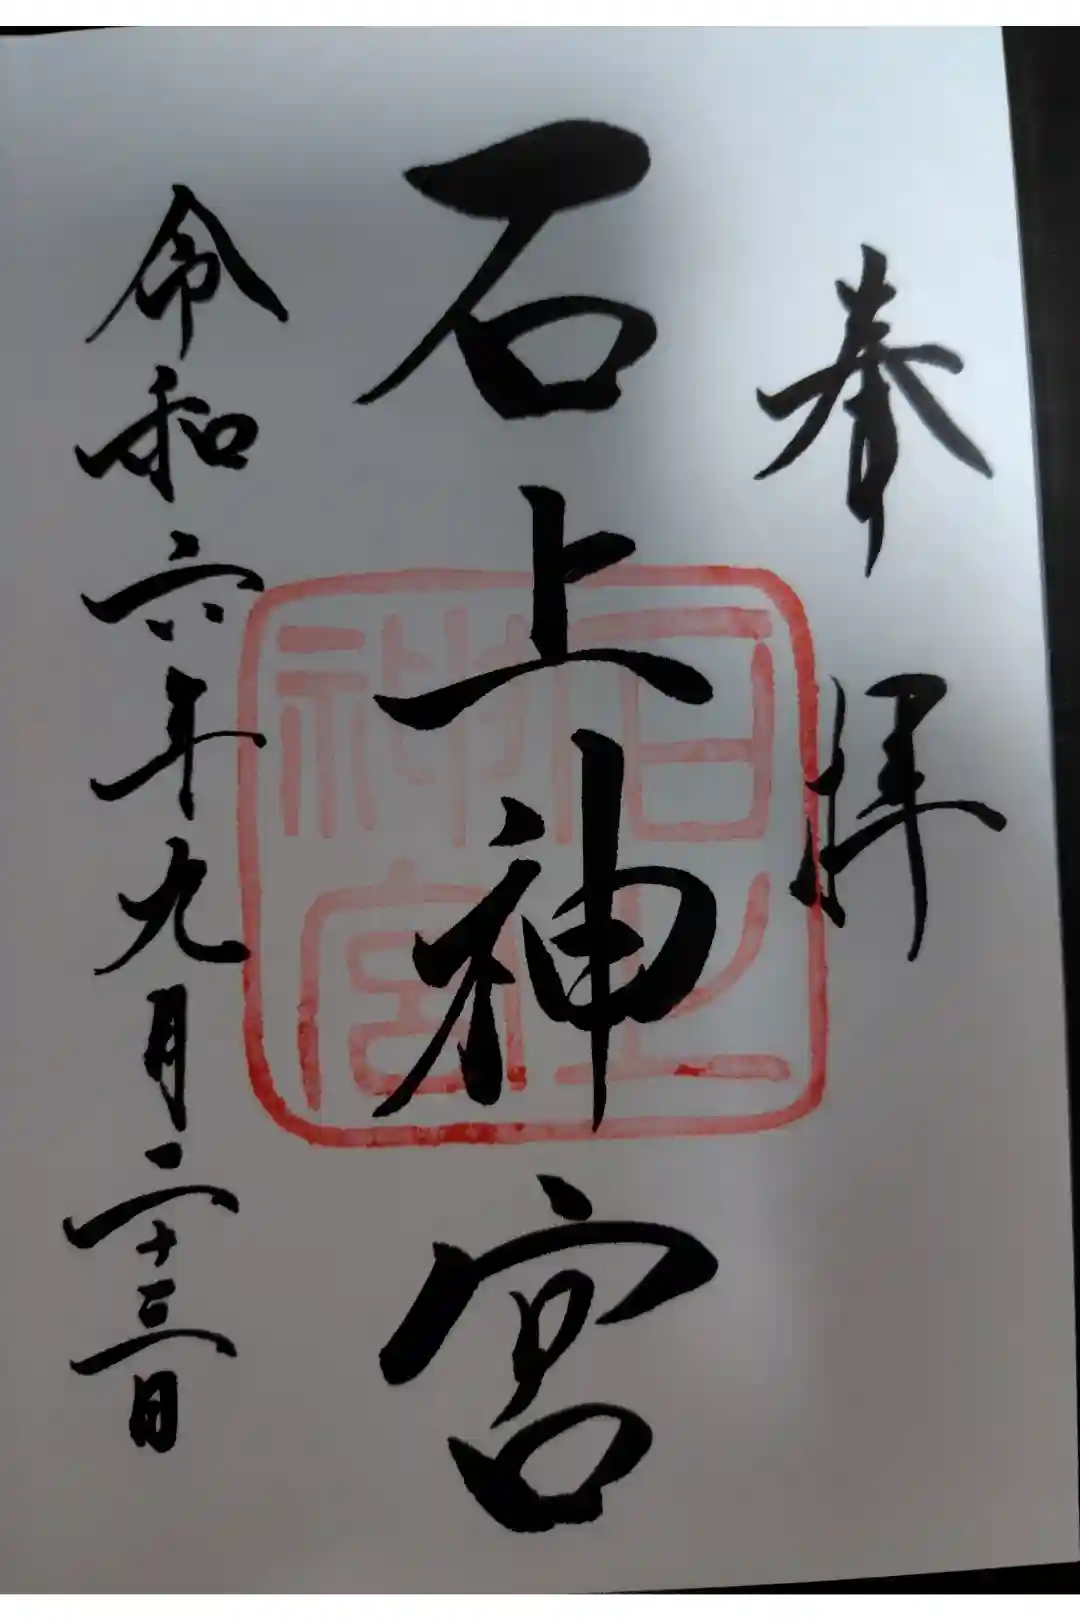 奉拝
石上神宮
令和六年九月二十三日
石上神宮